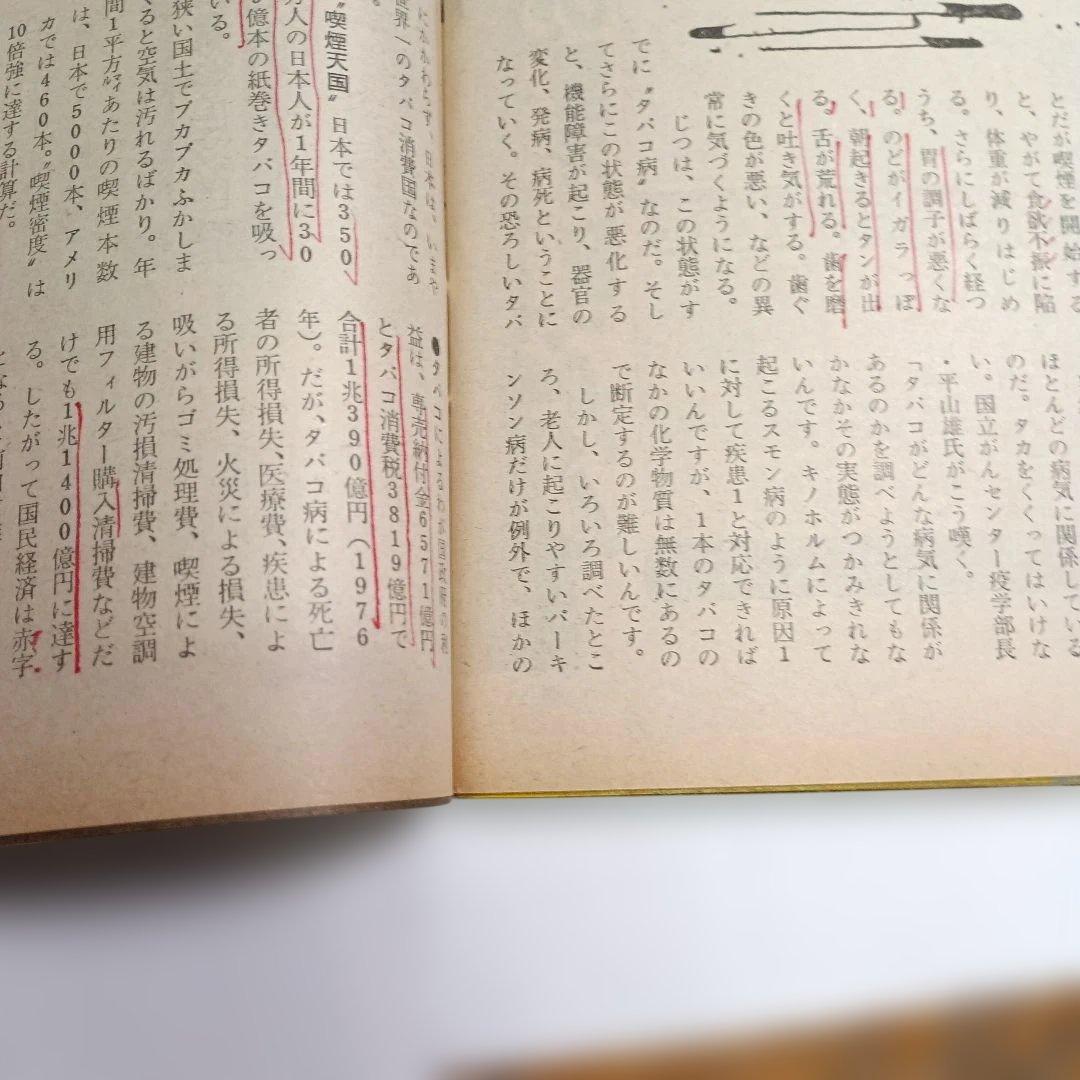 とだが喫煙を開始する
と、やがて食欲不振に陥
り、体重が減りはじめ
る。さらにしばらく経つ
うち、胃の調子が悪くな
る。のどがイガラっぽ
く、朝起きるとタンが出
る。舌が荒れる。歯を磨
くと吐き気がする。歯ぐ
きの色が悪い、などの異
常に気づくようになる。
じつは、この状態がす
でに〝タバコ病〟なのだ。そし
てさらにこの状態が悪化する
と、機能障害が起こり、器官の
変化、発病、病死ということに
なっていく。その恐ろしいタバ
ほとんどの病気に関係している
のだ。タカをくくってはいけな
い。国立がんセンター疫学部長
・平山雄氏がこう嘆く。
「タバコがどんな病気に関係が
あるのかを調べようとしてもな
かなかその実態がつかみきれな
いんです。キノホルムによって
起こるスモン病のように原因1
に対して疾患1と対応できれば
いいんですが、1本のタバコの
なかの化学物質は無数にあるの
で断定するのが難しいんです。
しかし、いろいろ調べたとこ
ろ、老人に起こりやすいパーキ
ンソン病だけが例外で、ほかの
にかかわらず、日本は、いまや
世界一のタバコ消費国なのであ
る。
〝喫煙天国〟日本では350
万人の日本人が1年間に30
億本の紙巻きタバコを吸っ
いる。
狭い国土でプカプカふかしま
くると空気は汚れるばかり。年
間1平方マイルあたりの喫煙本数
は、日本で5000本、アメリ
カでは460本。〝喫煙密度〟は
10倍強に達する計算だ。
●タバコによるわが国政府の利
益は、専売納付金6571億円
とタバコ消費税3819億円で
合計1兆390億円(1976
年)。だが、タバコ病による死亡
者の所得損失、医療費、疾患によ
る所得損失、火災による損失、
吸いがらゴミ処理費、喫煙によ
る建物の汚損清掃費、建物空調
用フィルター購入清掃費などだ
けでも1兆1400億円に達す
る。したがって国民経済は赤字